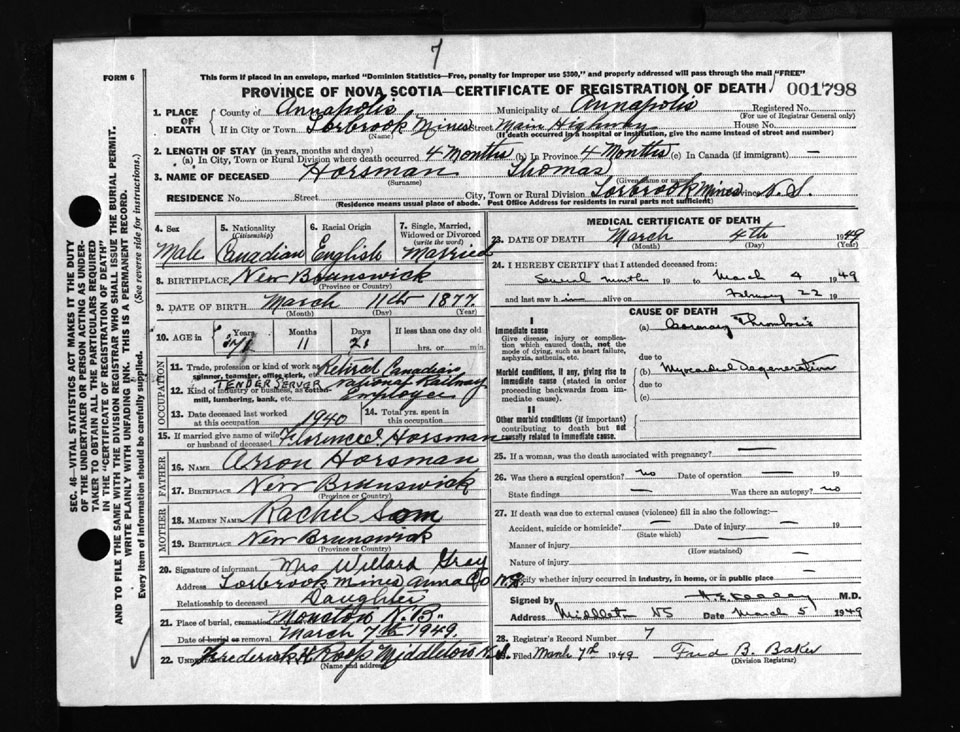 7
FORM 6
This form if placed in an envelope, marked "Dominion Statistics—Free, penalty for improper use $300," and properly addressed will pass through the mail "FREE"
PROVINCE OF NOVA SCOTIA—CERTIFICATE OF REGISTRATION OF DEATH 001798
1. PLACE OF DEATH County of Annapolis Municipality of Annapolis Registered No.
(For use of Registrar General only)
If in City or Town Torbrook Mines Street Main Highway House No.
(Name) (If death occurred in a hospital or institution, give the name instead of street and number)
2. LENGTH OF STAY (in years, months and days)
(a) In City, Town or Rural Division where death occurred 4 Months (b) In Province 4 Months (c) In Canada (if immigrant) —
3. NAME OF DECEASED Horsman Thomas
(Surname) (Given name or names)
RESIDENCE No. Street City, Town or Rural Division Torbrook Mines Province N.S.
(Residence means usual place of abode. Post Office Address for residents in rural parts not sufficient)
SEC. 46—VITAL STATISTICS ACT MAKES IT THE DUTY
OF THE UNDERTAKER OR PERSON ACTING AS UNDER-
TAKER TO OBTAIN ALL THE PARTICULARS REQUIRED
IN THE "CERTIFICATE OF REGISTRATION OF DEATH"
AND TO FILE THE SAME WITH THE DIVISION REGISTRAR WHO SHALL ISSUE THE BURIAL PERMIT.
WRITE PLAINLY WITH UNFADING INK. THIS IS A PERMANENT RECORD.
Every item of information should be carefully supplied. (See reverse side for instructions.)
4. Sex 5. Nationality (Citizenship) 6. Racial Origin 7. Single, Married, Widowed or Divorced (write the word)
Male Canadian English Married
8. BIRTHPLACE New Brunswick
(Province or Country)
9. DATE OF BIRTH March 11th 1877
(Month) (Day) (Year)
10. AGE in Years Months Days If less than one day
11 21 hrs. or min.
OCCUPATION
11. Trade, profession or kind of work as spinner, teamster, office clerk, etc. Retired Canadian
TENDER SERVOR National Railway
12. Kind of industry or business, as cotton-mill, lumbering, bank, etc. Employee
13. Date deceased last worked at this occupation 1940 14. Total yrs. spent in this occupation
15. If married give name of wife or husband of deceased Florence Horsman
FATHER
16. NAME Arron Horsman
17. BIRTHPLACE New Brunswick
(Province or Country)
MOTHER
18. MAIDEN NAME Rachel
19. BIRTHPLACE New Brunswick
(Province or Country)
20. Signature of informant Mrs Willard Gray
Address Torbrook Mines Anna Co N.S.
Relationship to deceased Daughter
21. Place of burial, cremation Moncton N.B.
Date of burial or removal March 7th 1949.
22. Frederick Roop Middleton N.S.
(Name and address)
MEDICAL CERTIFICATE OF DEATH
23. DATE OF DEATH March 4th 1949
(Month) (Day) (Year)
24. I HEREBY CERTIFY that I attended deceased from:
Several months 19 to March 4 1949
and last saw him alive on February 22 19
CAUSE OF DEATH
I
Immediate cause (a) Coronary Thrombosis
Give disease, injury or complication which caused death, not the mode of dying, such as heart failure, asphyxia, asthenia, etc. due to
Morbid conditions, if any, giving rise to immediate cause (stated in order proceeding backwards from immediate cause). (b) Myocardial Degeneration
due to
(c)
II
Other morbid conditions (if important) contributing to death but not causally related to immediate cause.
25. If a woman, was the death associated with pregnancy? —
26. Was there a surgical operation? no Date of operation — 19
State findings — Was there an autopsy? no
27. If death was due to external causes (violence) fill in also the following:—
Accident, suicide or homicide? — Date of injury — 19
(State which)
Manner of injury —
(How sustained)
Nature of injury —
Specify whether injury occurred in industry, in home, or in public place —
Signed by M.D.
Address Middleton NS Date March 5 1949
28. Registrar's Record Number 7
29. Filed March 7th 1949 Fred B. Baker
(Division Registrar)